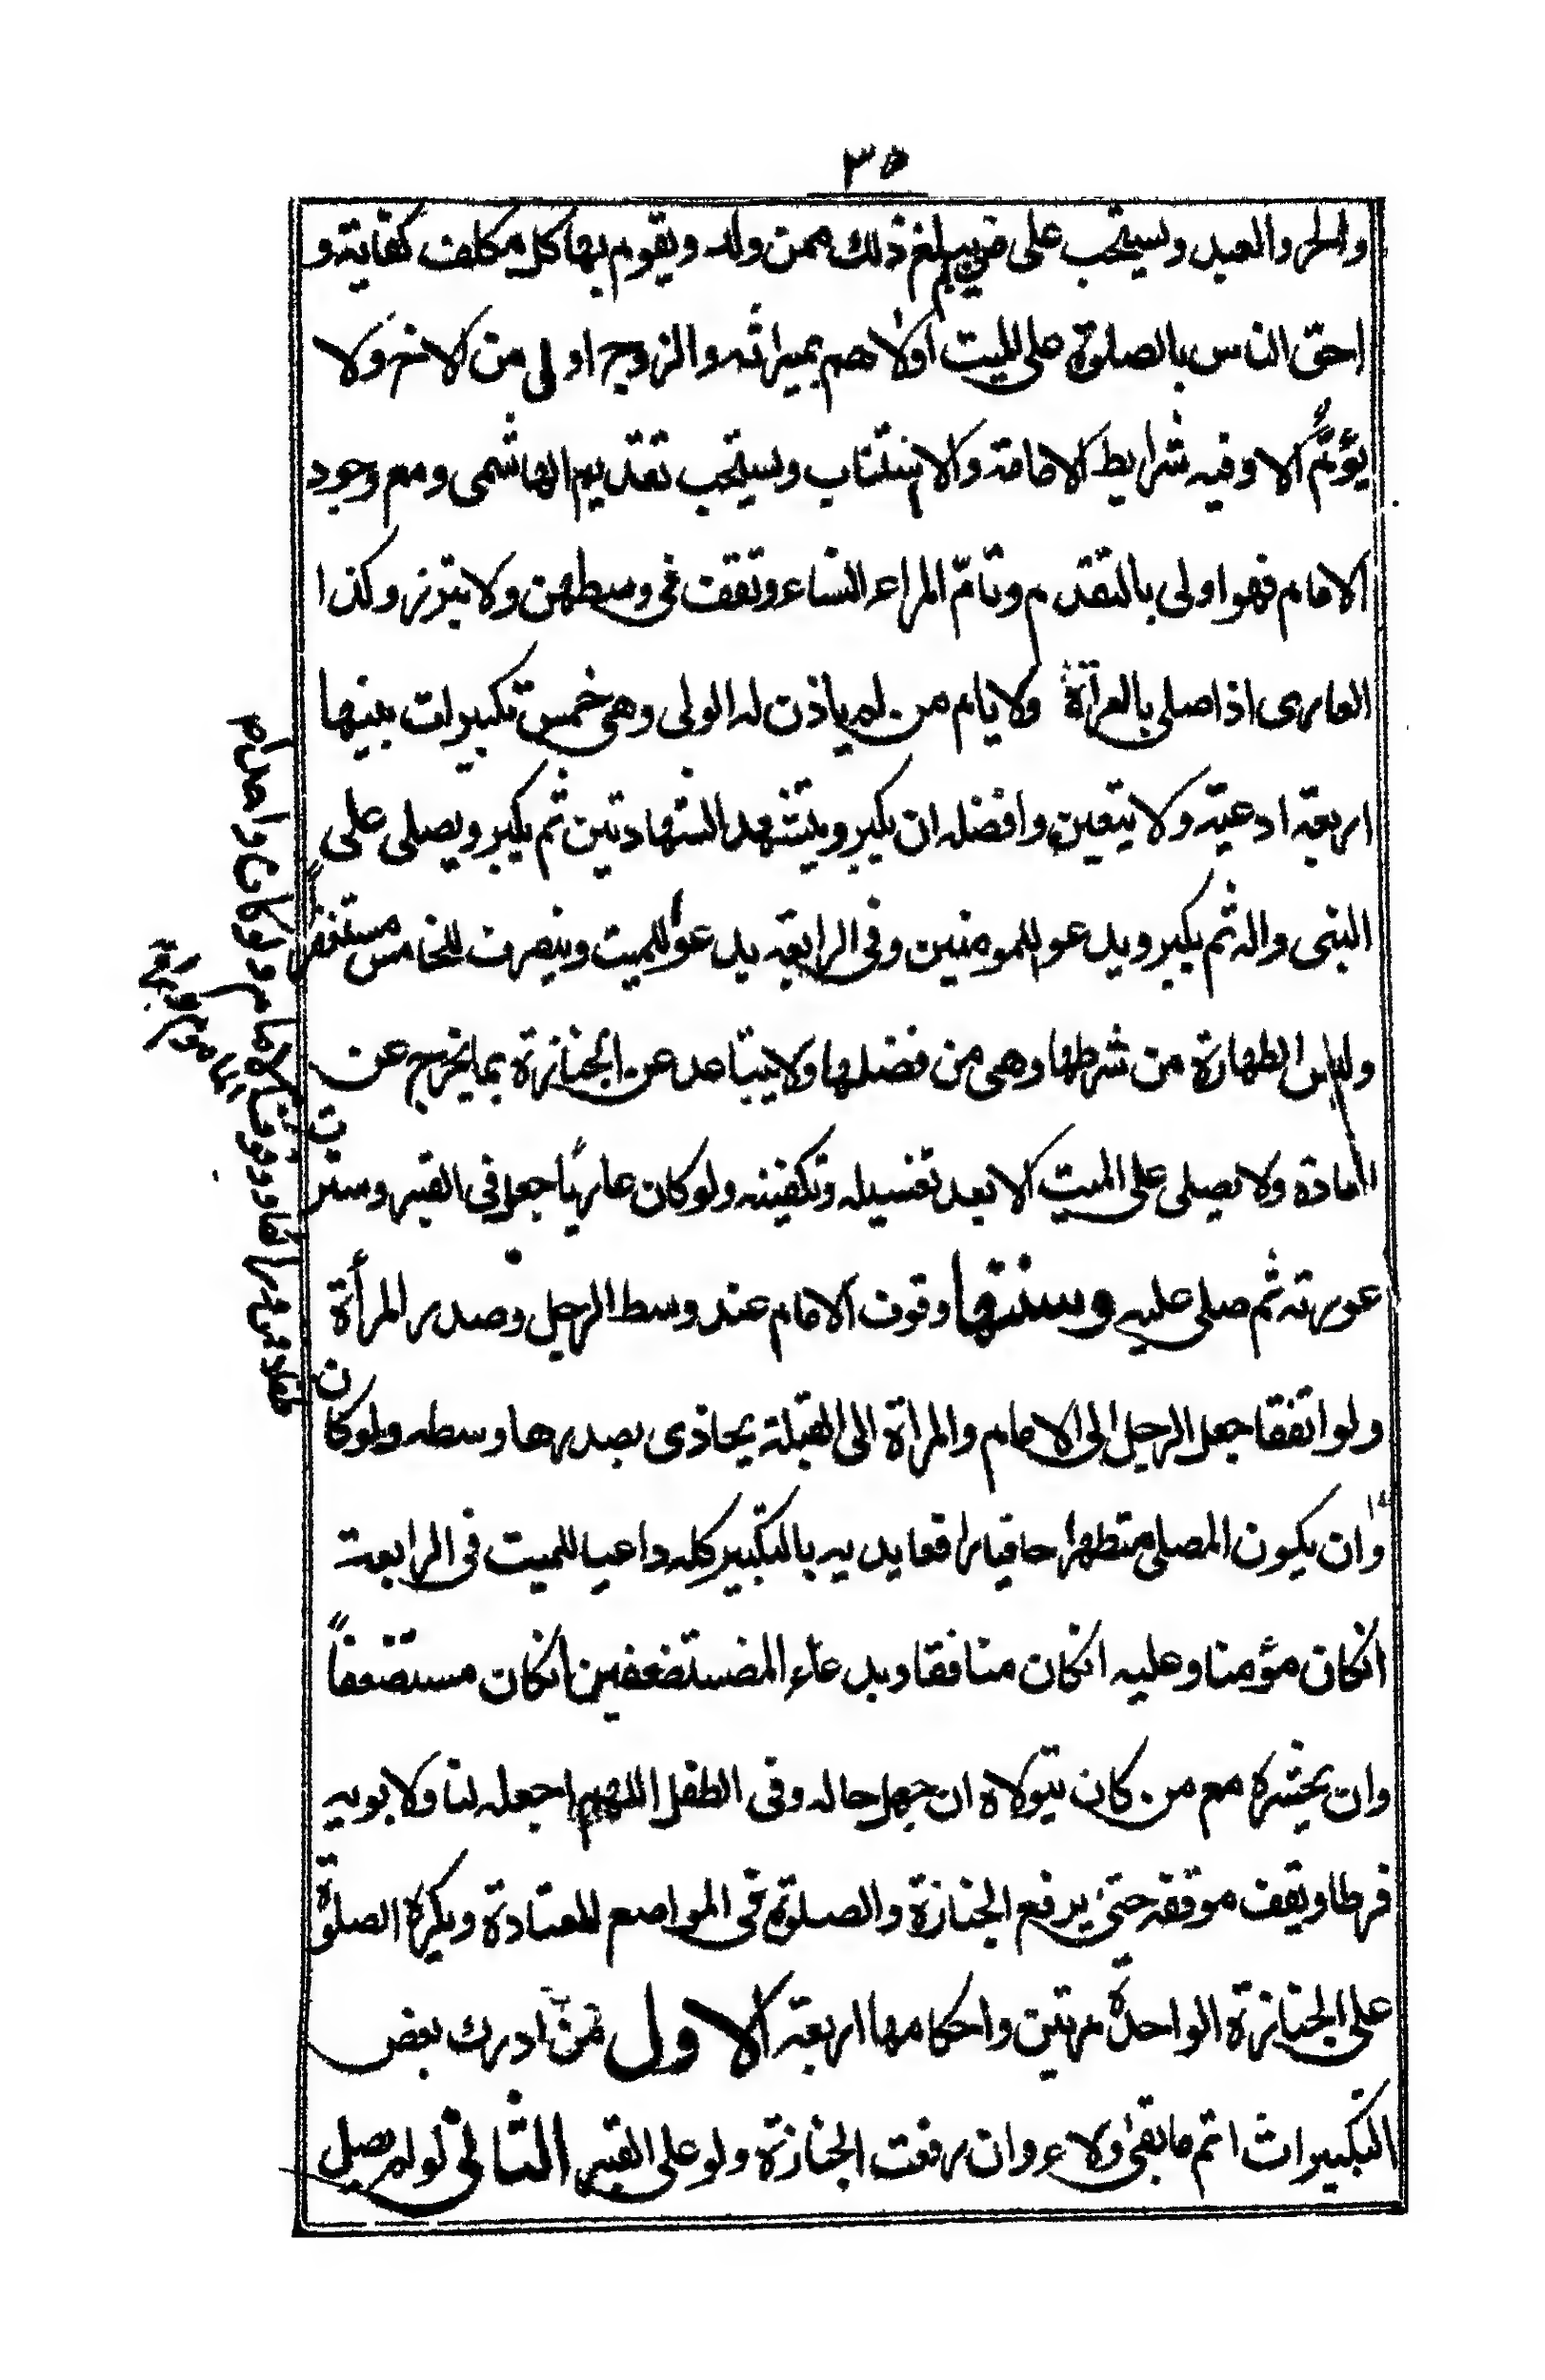 ٣٥
والحر والعبد ويستحب على من لم يبلغ ذلك ممن ولد ويقوم بها كل مكلف كفاية و
احق الناس بالصلوة على الميت اولاهم بميراثه والزوج اولى من الاخ ولا
يؤمّ الا وفيه شرايط الامامة والا استناب ويستحب تقديم الهاشمى ومع وجود
الامام فهو اولى بالتقدم وتامّ المراء النساء وتقف فى وسطهن ولا تبرز وكذا
العارى اذا صلى بالعراة ولا يام من لم ياذن له الولى وهى خمس تكبيرات بينها
اربعة ادعية ولا يتعين وافضله ان يكبر ويتشهد الشهادتين ثم يكبر ويصلى على
النبى واله ثم يكبر ويدعو للمومنين وفى الرابعة يدعوا للميت وينصرف للخامس مستغفراً
وليس الطهارة من شرطها وهى من فضلها ولا يتباعد عن الجنازة بما يخرج عن
العادة ولا يصلى على الميت الا بعد تغسيله وتكفينه ولو كان عاريًا جعل فى القبر وسترت
عورته ثم صلى عليه وسنتها وقوف الامام عند وسط الرجل وصدر المرأة
ولو اتفقا جعل الرجل الى الامام والمراة الى القبلة يحاذى بصدرها وسطه ولو كان
وان يكون المصلى متطهرا حافيا رافعا يديه بالتكبير كله داعيا للميت فى الرابعة
انكان مؤمنا وعليه انكان منافقا وبدعاء المضستضعفين انكان مستضعفاً
وان يحشره مع من كان يتولاه ان جهل حاله وفى الطفل اللهم اجعله لنا ولابويه
فرطا ويقف موقفه حتى يرفع الجنازة والصلوة فى المواضع المعتادة ويكره الصلوة
على الجنازة الواحدة مرتين واحكامها اربعة الاول من ادرك بعض
التكبيرات اتم ما بقى ولاء وان رفعت الجنازة ولو على القبر الثانى لو لم يصل